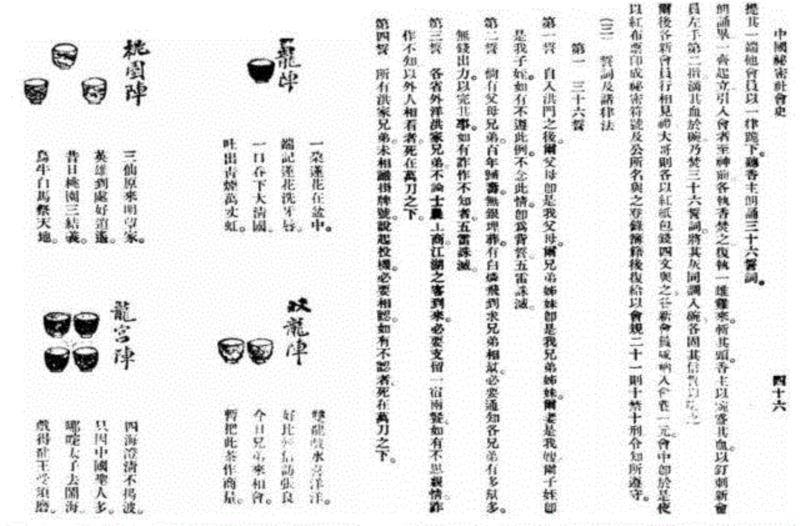 中國秘密社會史
四十六
提其一端他會員以一律跪下聽香主朗誦三十六誓詞。
朗誦畢一齊起立引入會者至神前各執香焚之復執一雄雞來斬其頭香主以碗盛其血以釘刺新會
員左手第二指滴其血於碗乃焚三十六誓詞將其灰同調入碗各固其信誓
爾後各新會員行相見禮大哥則各以紅紙包錢四文與之各新會員或納入會費一元會中卽於是夜
以紅布票印成秘密符號及公所名與之登錄簿籍後復給以會規二十一則十禁十刑令知所遵守。
(二) 誓詞及諸律法
第一 三十六誓
第一誓 自入洪門之後爾父母卽是我父母爾兄弟姊妹卽是我兄弟姊妹爾妻是我嫂爾子姪卽
是我子姪如有不遵此例不念此情卽爲背誓五雷誅滅。
第二誓 倘有父母兄弟百年歸壽無銀埋葬有白燐飛到求兄弟相幫必要通知各兄弟有多幫多
無錢出力以完其事如有詐作不知者五雷誅滅
第三誓 各省外洋洪家兄弟不論士農工商江湖之客到來必要支留一宿兩餐如有不思親情詐
作不知以外人相看者死在萬刀之下
第四誓 所有洪家兄弟未相識掛牌號說起投機必要相認如有不認者死在萬刀之下。
一龍陣
一朶蓮花在盆中。
端記蓮花洗牙脣。
一口吞下大清國。
吐出靑煙萬丈虹。
雙龍陣
雙龍戲水喜洋洋。
好比 信訪張良
今日兄弟來相會。
暫把此茶作商量。
桃園陣
三仙原來明望家。
英雄到處好逍遙。
昔日桃園三結義。
烏牛白馬祭天地。
龍宮陣
四海澄清不揚波。
只因中國聖人多。
哪吒太子去鬧海。
戲得龍王受須磨。